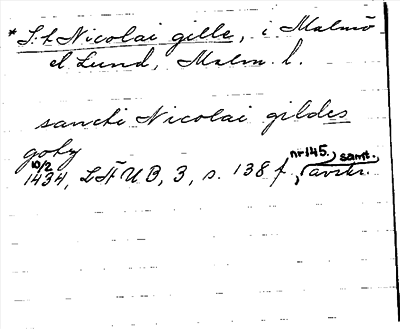 * S:t Nicolai gille, i Malmö
el Lund, Malm. h.
sancti Nicolai gildes
gotz
10/2 1434, LÄUB, 3, s. 138 f, nr 145, samt. avskr.